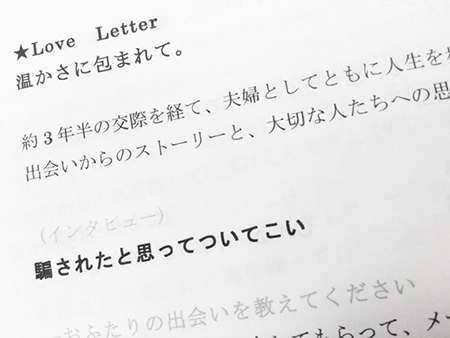 ★Love Letter
温かさに包まれて。
約3年半の交際を経て、夫婦としてともに人生を
出会いからのストーリーと、大切な人たちへの思
(インタビュー)
騙されたと思ってついてこい
―おふたりの出会いを教えてください
してもらって、メー